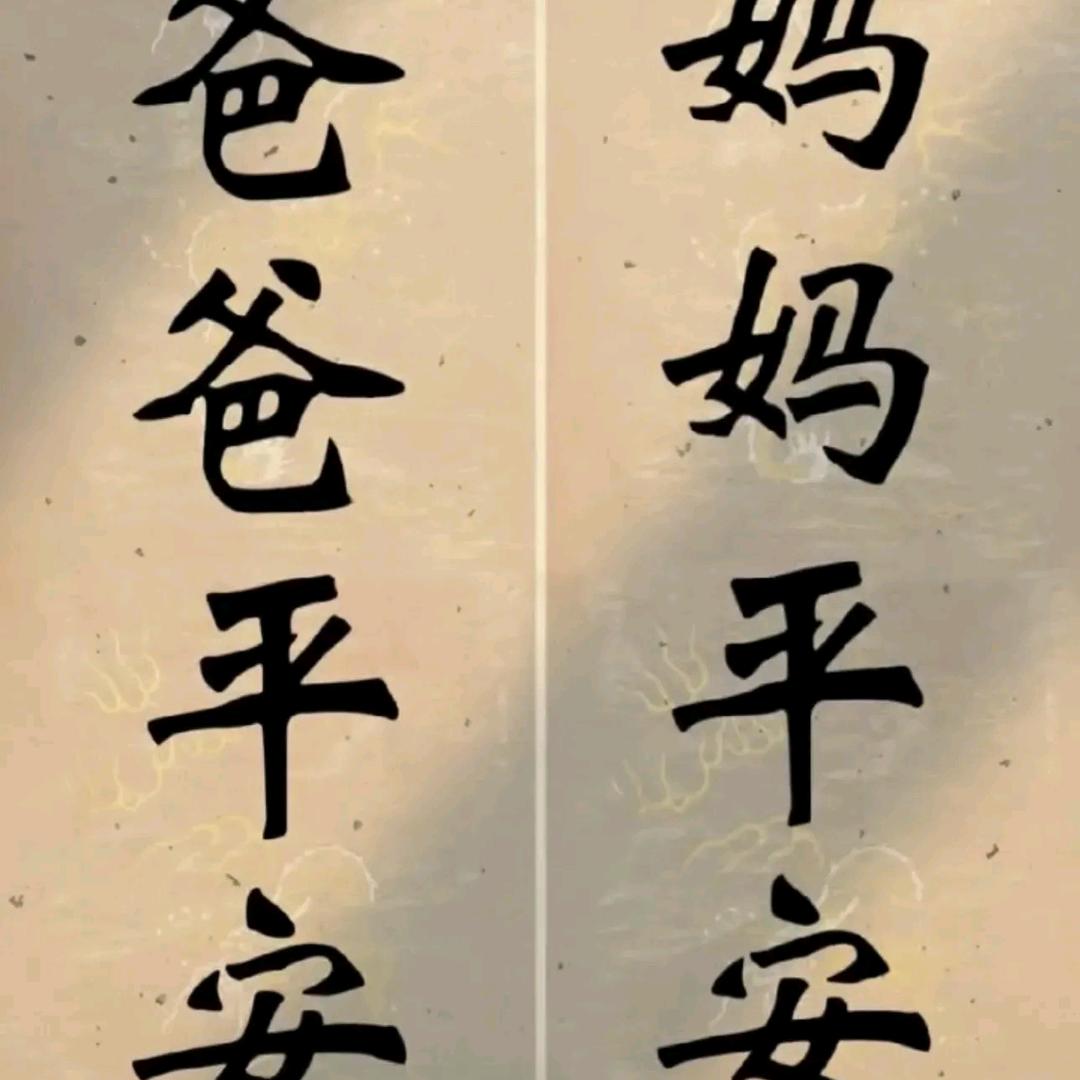 爸爸平安
妈妈平安